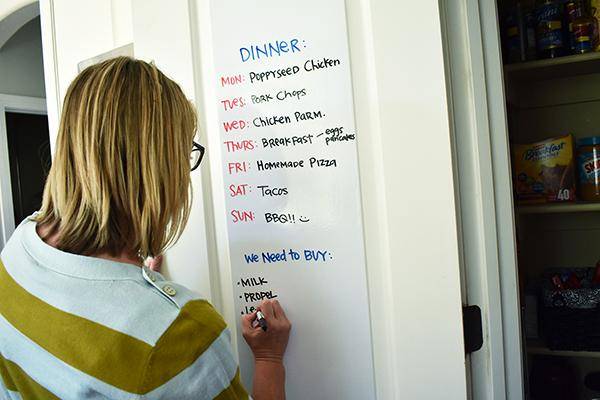 DINNER:
MON: Poppyseed Chicken
TUES: PORK CHOPS
WED: Chicken PARM.
THURS: BREAKFAST – eggs pancakes
FRI: HOMEMADE PIZZA
SAT: TACOS
SUN: BBQ!!
We Need to BUY:
• MILK
• PROPEL
Breakfast
40